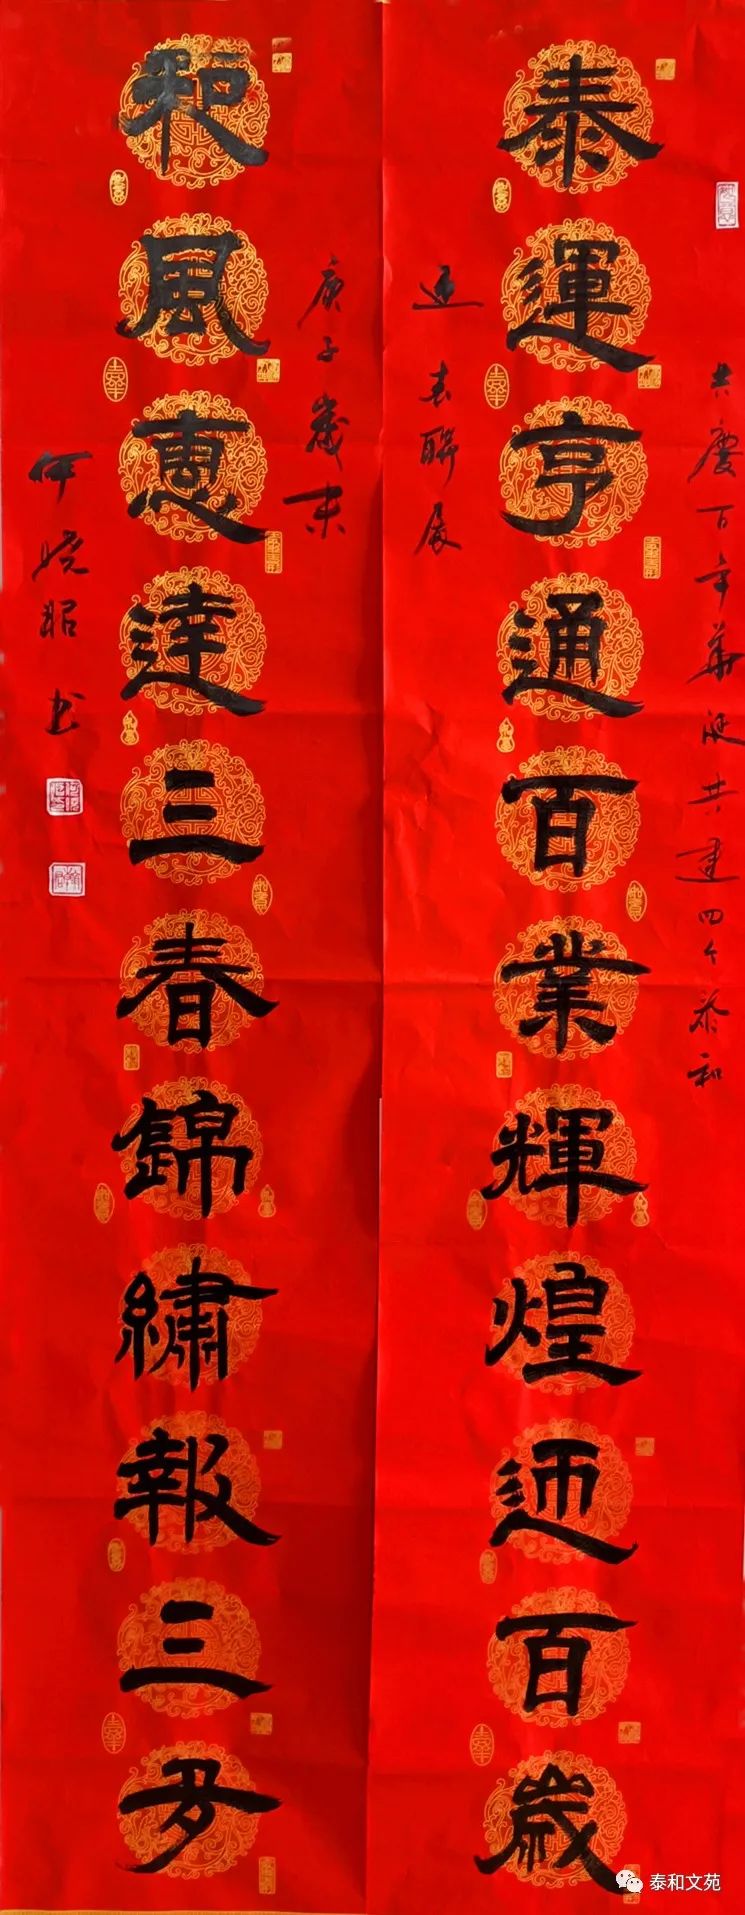 共慶百年華诞共建四个泰和
泰運亨通百業輝煌迎百歲
迎春聯展
和風惠達三春錦繡報三多
庚子歲末
何晓昭书
泰和文苑